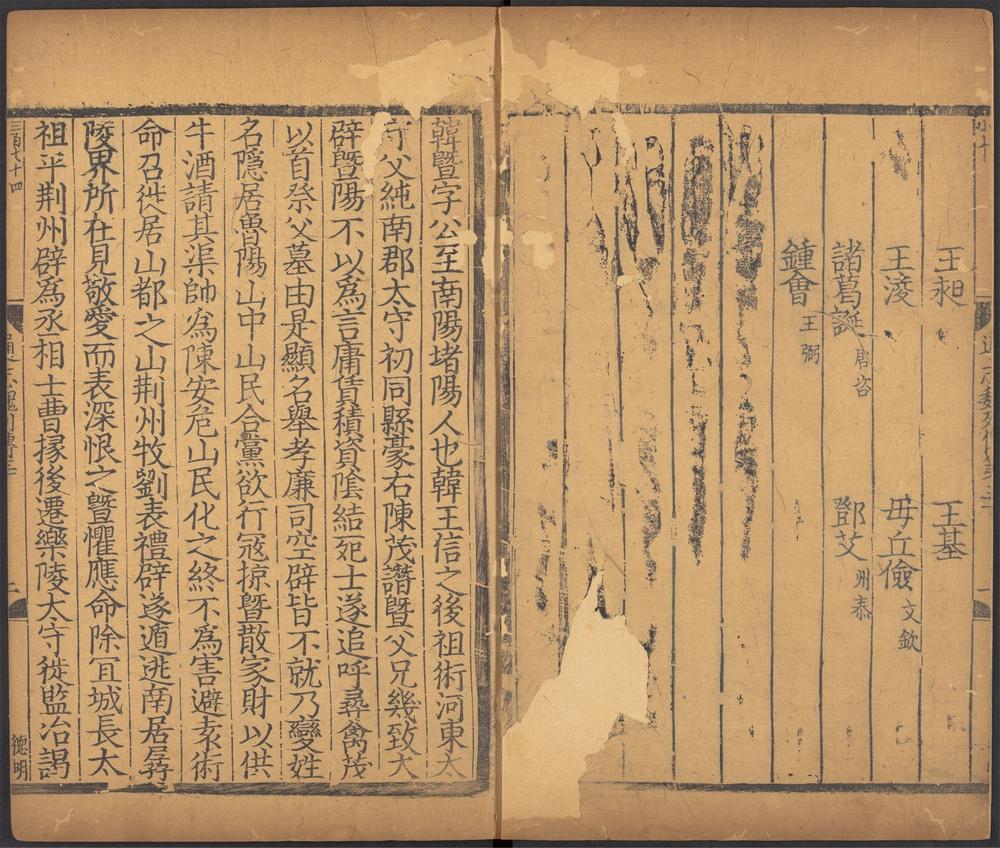 王昶 王基
王淩 毋丘儉 文欽
諸葛誕 唐咨 鄧艾 州泰
鍾會 王弼
韓曁字公至南陽堵陽人也韓王信之後祖術河東太
守父純南郡太守初同縣豪右陳茂譖曁父兄幾致大
辟曁陽不以爲言庸賃積資陰結死士遂追呼尋禽茂
以首祭父墓由是顯名舉孝廉司空辟皆不就乃變姓
名隱居魯陽山中山民合黨欲行冦掠曁散家財以供
牛酒請其渠帥爲陳安危山民化之終不爲害避袁術
命召徙居山都之山荆州牧劉表禮辟遂遁逃南居孱
陵界所在見敬愛而表深恨之曁懼應命除宜城長太
祖平荆州辟爲丞相士曹掾後遷樂陵太守徙監冶謁
德明